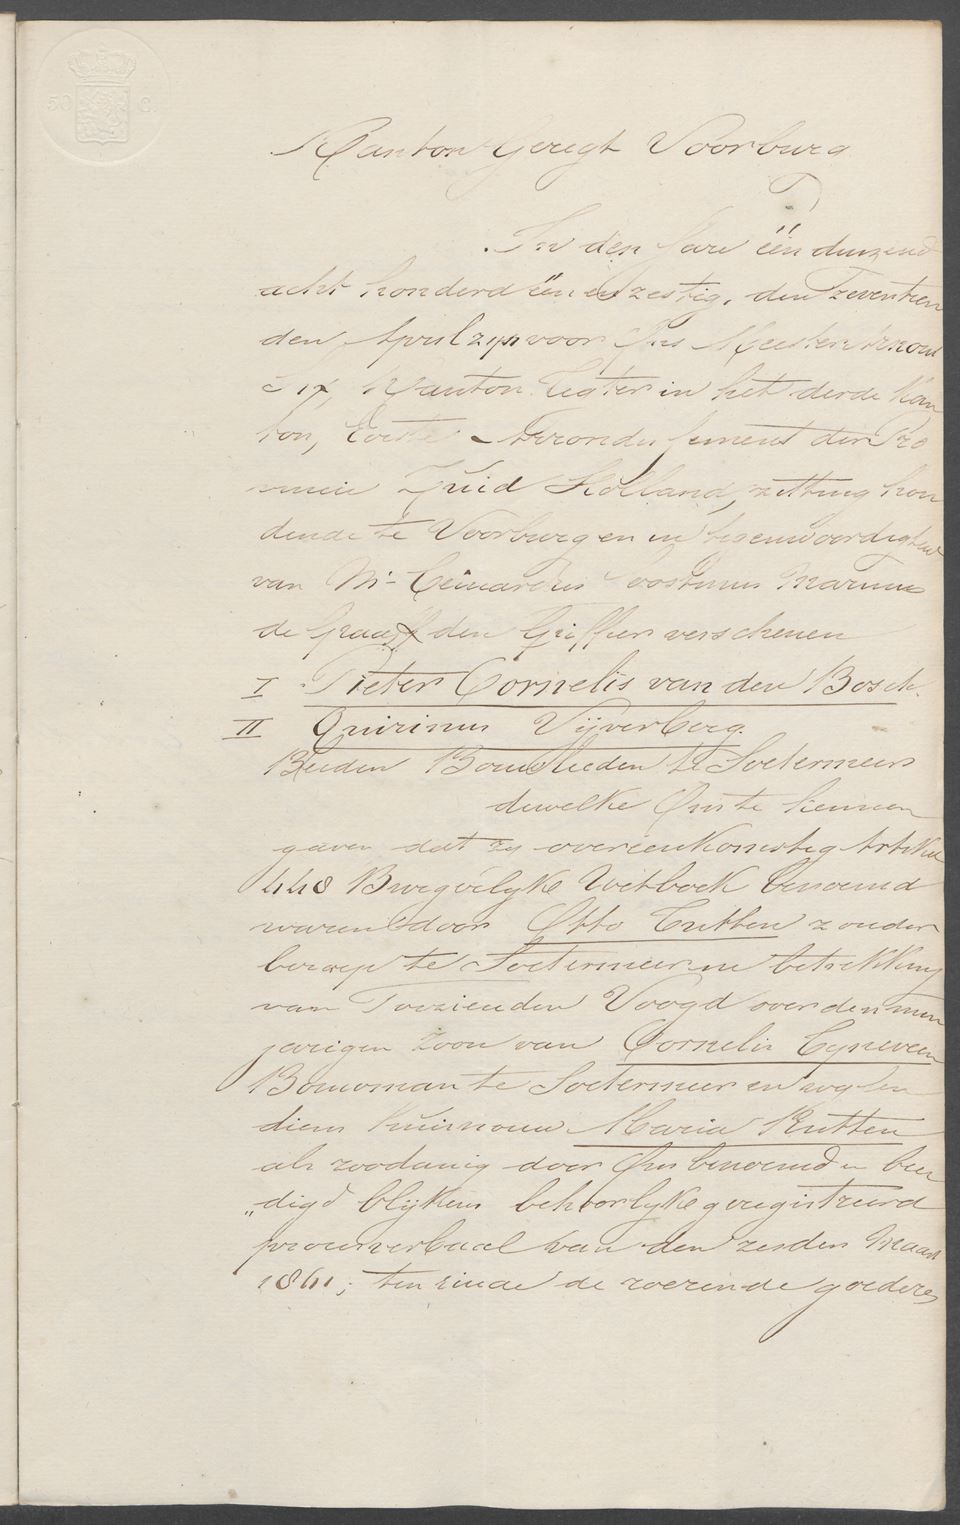 50 C.
Kanton Geregt Voorburg
In den Jare één duizend
acht honderd één en zestig, den Zeventien
den April zyn voor Ons Meester Arnoud
Six, Kanton Regter in het derde Kan
ton, Eerste Arrondissement der Pro
vincie Zuid Holland, zitting hou
dende te Voorburg en in tegenwoordigheid
van Mr. Joostinus Marinus
de Graaff den Griffier verschenen
I Pieter Cornelis van den Bosch
II Quirinus Vijverberg
Beiden Bouwlieden te Soetermeer
dewelke Ons te kennen
gaven dat zy overeenkomstig Artikel
448 Burgerlyke Wetboek benoemd
waren door Otto Rutten zonder
beroep te Soetermeer in betrekking
van Toezienden Voogd over den min
jarigen Zoon van Cornelis Cyneveen
Bouwman te Soetermeer en wylen
diens huisvrouw Maria Rutten
als zoodanig door Ons benoemd en beë
„digd blijkens behoorlyk geregistreerd
procesverbaal van den zesden Maart
1861; ten einde de roerende goederen